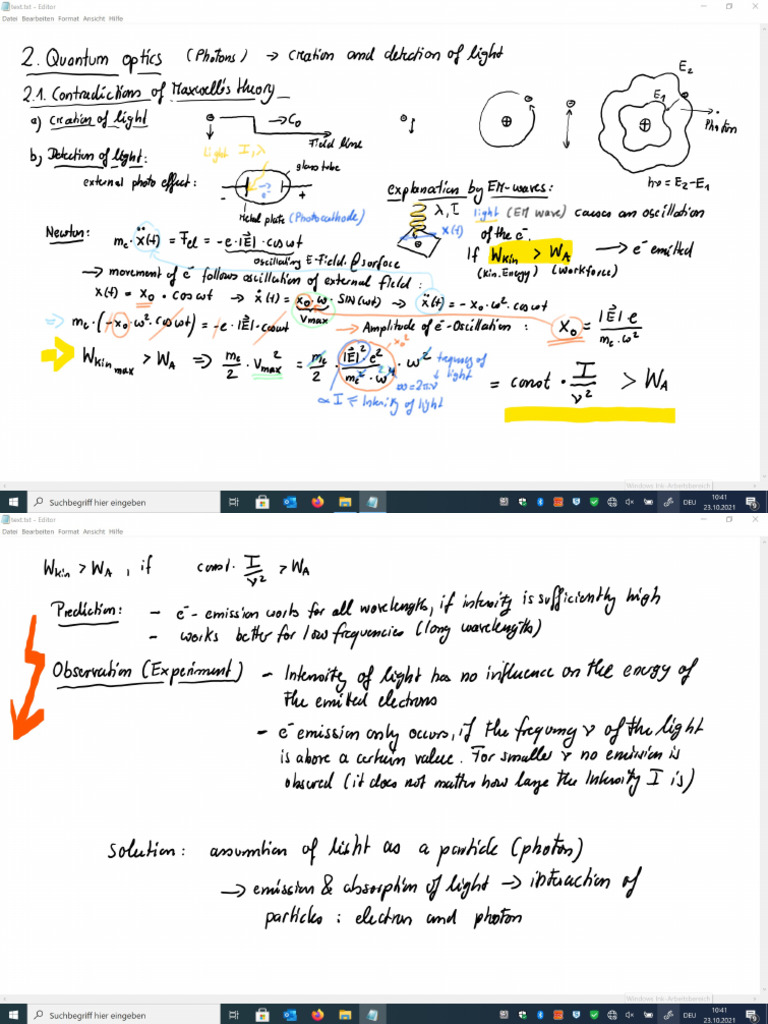 text.txt - Editor
Datei Bearbeiten Format Ansicht Hilfe
2. Quantum optics (Photons) → creation and detection of light
2.1. Contradictions of Maxwell's theory
a) Creation of light
⊖ → C₀
Field line
E₂
E₁
Photon
hν = E₂ - E₁
b) Detection of light:
light I, λ
glass tube
external photo effect:
- e⁻ +
Metal plate (Photocathode)
explanation by EM-waves:
λ, I light (EM wave) causes an oscillation
x(t) of the e⁻.
If Wkin > WA → e⁻ emitted
(kin. Energy) (workforce)
Newton: me · ẍ(t) = Fel = -e·|E⃗|·cos ωt
oscillating E-Field @ surface
→ movement of e⁻ follows oscillation of external field:
x(t) = x₀ · cos ωt → ẋ(t) = x₀·ω· SIN(ωt) → ẍ(t) = - x₀·ω²·cos ωt
Vmax
⇒ me·(-x₀·ω²·cos ωt) = -e·|E⃗|·cos ωt → Amplitude of e⁻-Oscillation: x₀ = |E⃗| e / me·ω²
Wkin max > WA ⇒ me/2 · Vmax² = me/2 · |E⃗|² e² / me² · ω⁴ · ω² = const · I/ν² > WA
x₀²
frequency of light
ω = 2πν
∝ I ≙ Intensity of light
Windows Ink-Arbeitsbereich
Suchbegriff hier eingeben
DEU
10:41
23.10.2021
text.txt - Editor
Datei Bearbeiten Format Ansicht Hilfe
Wkin > WA , if const. I/ν² > WA
Prediction: - e⁻- emission works for all wavelengths, if intensity is sufficiently high
- works better for low frequencies (long wavelengths)
Observation (Experiment) - Intensity of light has no influence on the energy of
the emitted electrons
- e⁻ emission only occurs, if the frequency ν of the light
is above a certain value. For smaller ν no emission is
observed (it does not matter how large the Intensity I is)
Solution: assumtion of light as a particle (photon)
→ emission & absorption of light → interaction of
particles: electron and photon
Windows Ink-Arbeitsbereich
Suchbegriff hier eingeben
DEU
10:41
23.10.2021